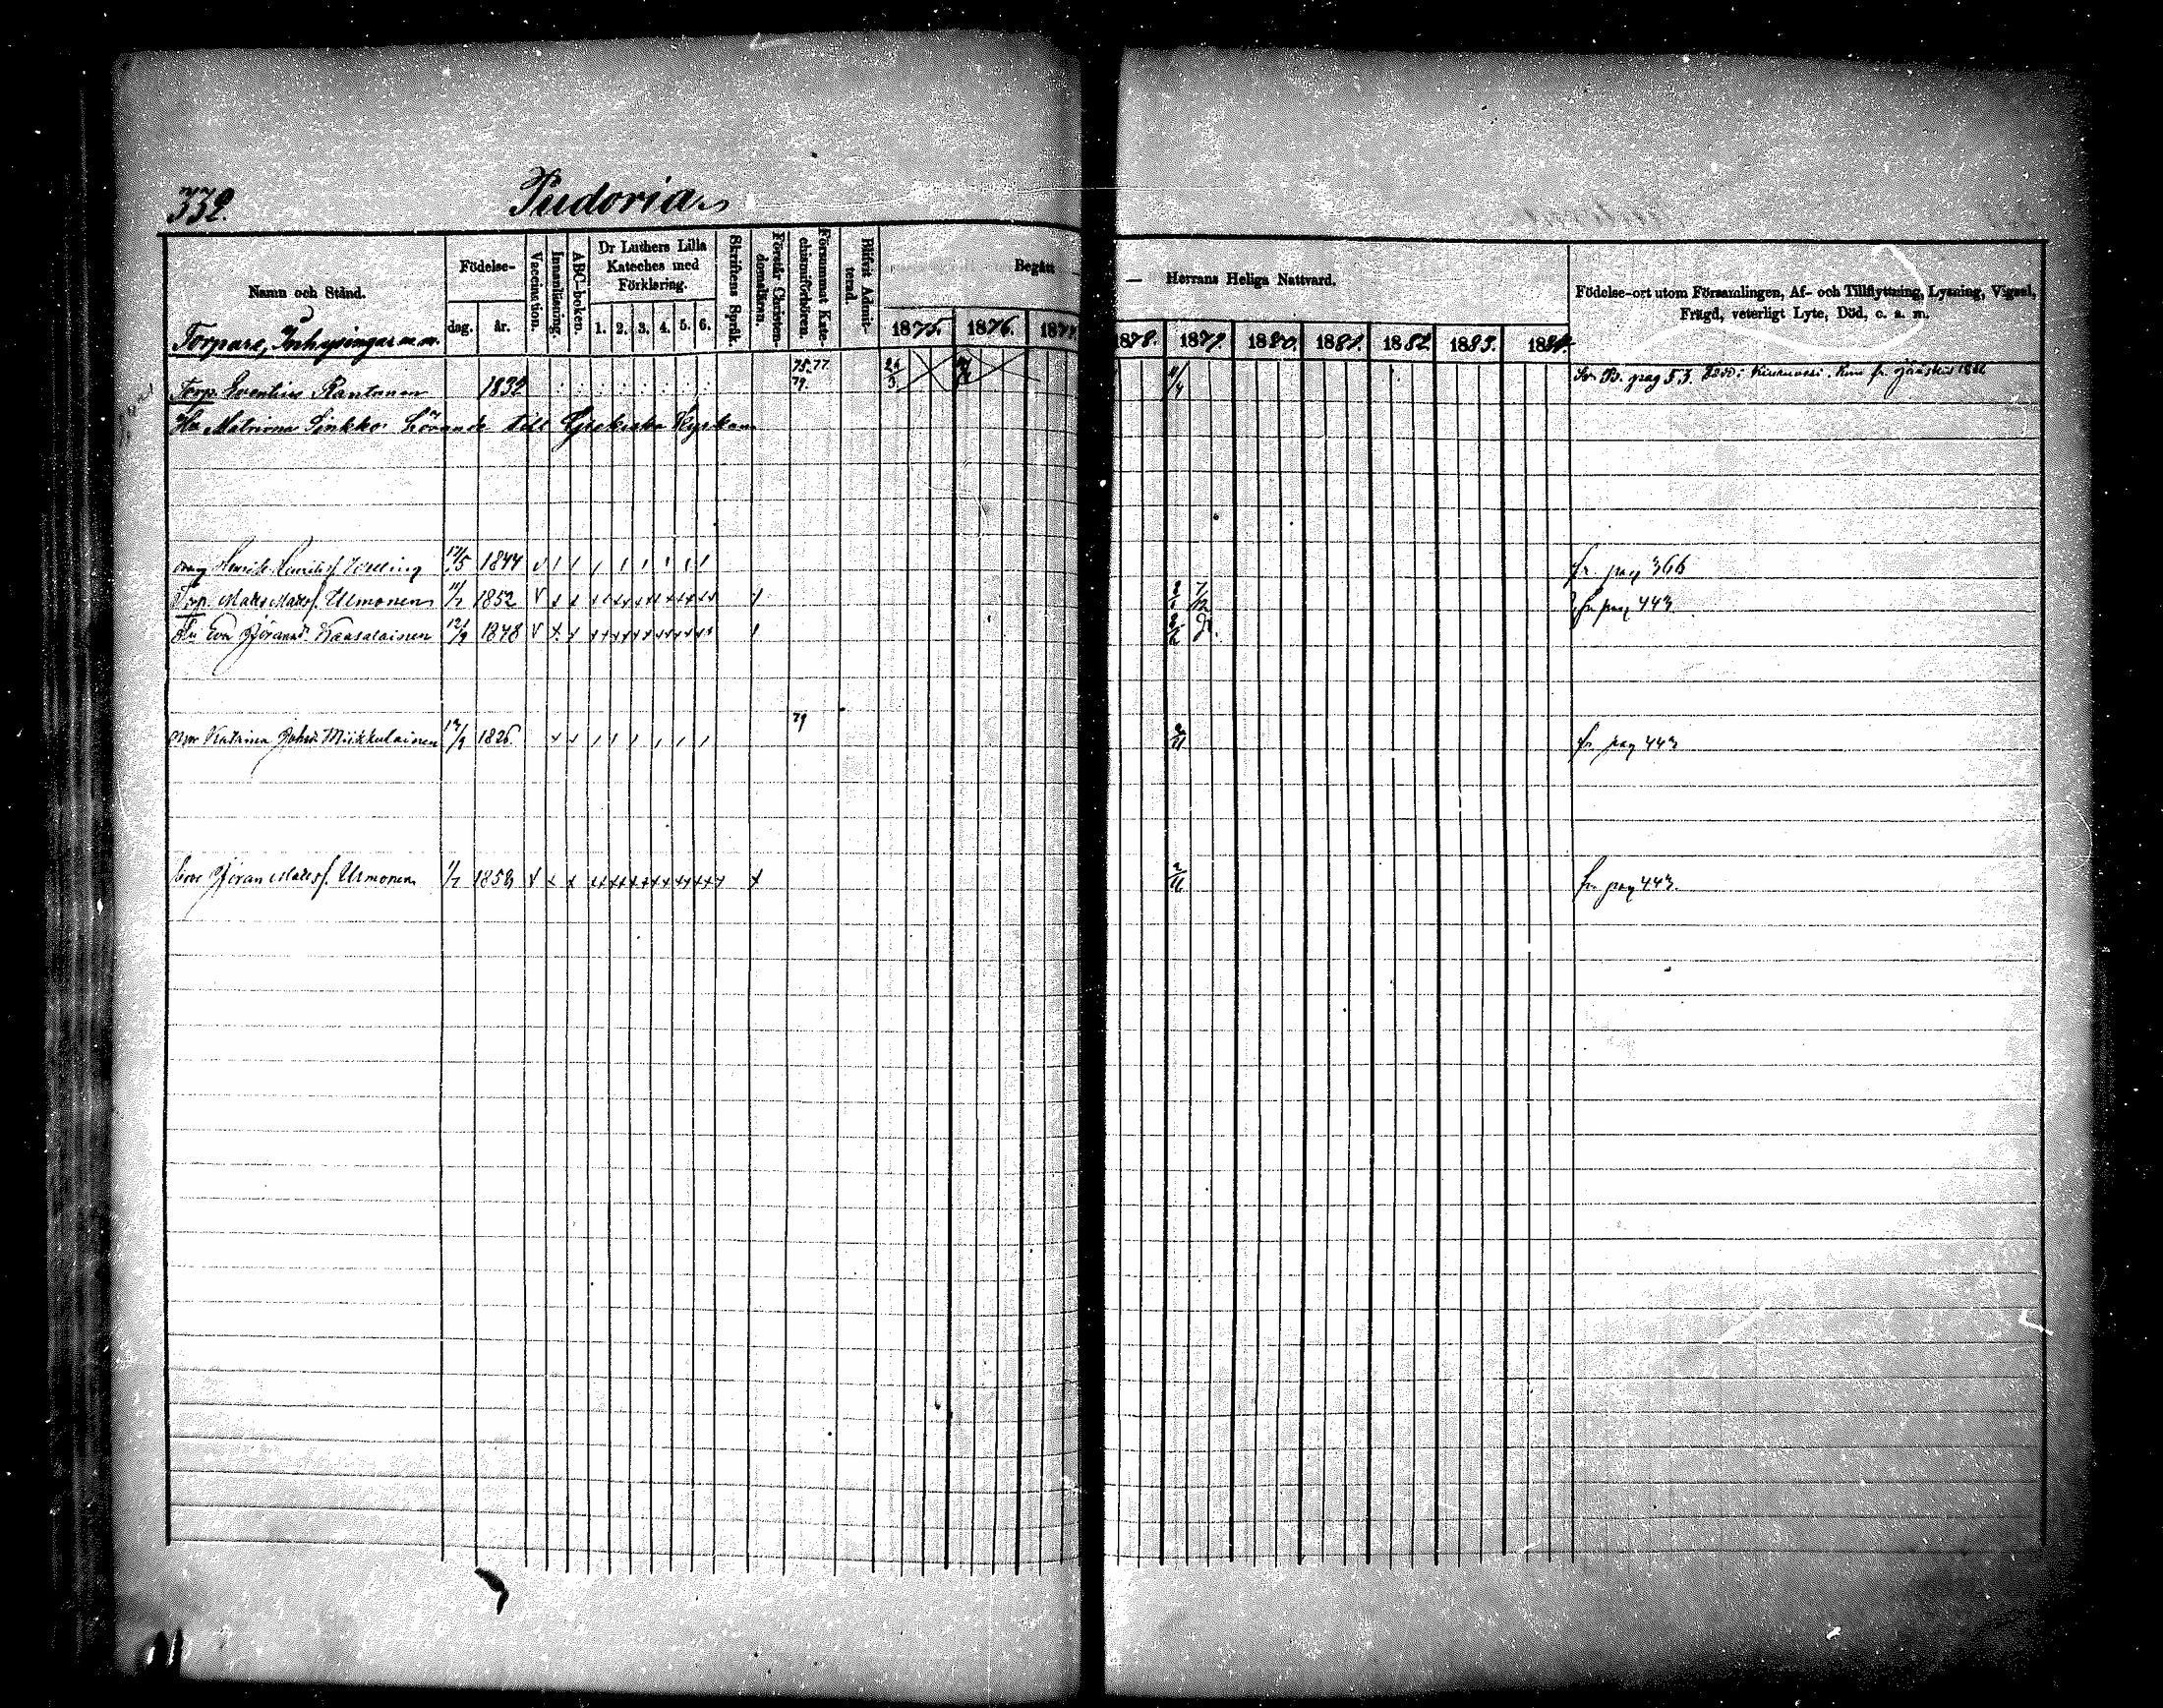 332.
Pudoria
Namn och Stånd.
Födelse-
dag. år.
Vaccination.
Innanläsning.
ABC-boken.
Dr Luthers Lilla
Kateches med
Förklaring.
1. 2. 3. 4. 5. 6.
Skriftens Språk.
Förstår Christen-
domsläran.
Försummat Kate-
chismiförhören.
Blifvit Admit-
terad.
Begått — Herrans Heliga Nattvard.
1875. 1876. 1877. 1878. 1879. 1880. 1881. 1882. 1883. 1884.
Födelse-ort utom Församlingen, Af- och Tillflyttning, Lysning, Vigsel,
Frägd, veterligt Lyte, Död, c. a. m.
Torpare, Inhysingar m. m.
Torp. Rantanen 1832 75. 77. 79. pag 53.
Hu Matrona Sinkko hörande till Grekiska Kyrkan
Henrik Henriksf. 17/5 1844 fr. pag 366
Torp. Matts Mattsf. Urmonen 11/1 1852 fr. pag 443
Hu Eva Göransdr Kaasalainen 12/9 1848
Katrina Johsdr Mikkulainen 12/9 1826. 79 fr. pag 443
bror Göran Mattsf. Urmonen 11/7 1858 2/11 fr. pag 443.